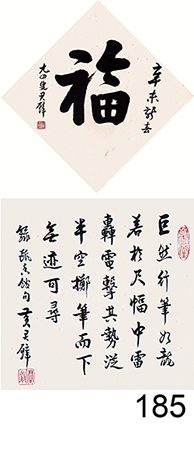 辛未
福
九四叟君璧
巨然行筆如龍
若於尺幅中雷
轟電擊其勢從
半空擲筆而下
無迹可尋
錄甌香館句 黃君璧
185